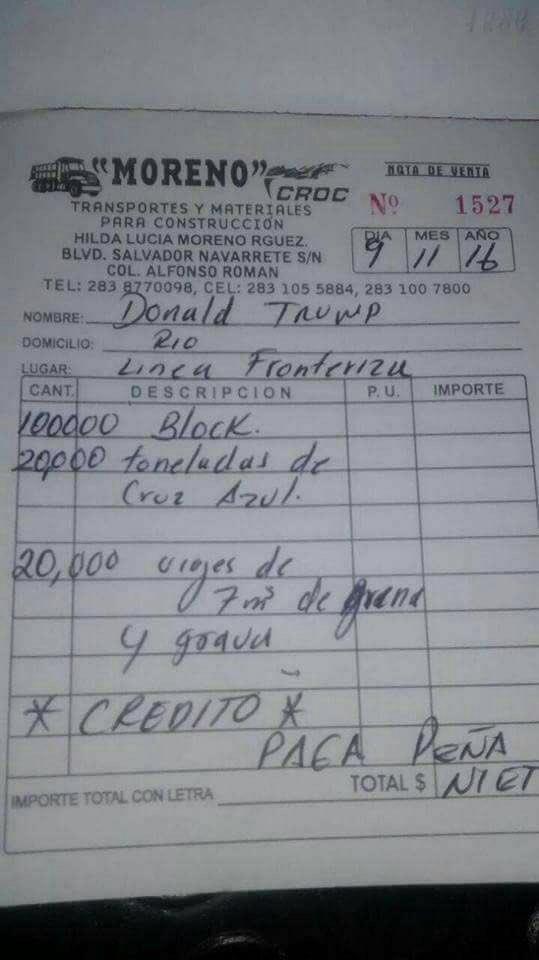 "MORENO"
CROC
TRANSPORTES Y MATERIALES
PARA CONSTRUCCIÓN
HILDA LUCIA MORENO RGUEZ.
BLVD. SALVADOR NAVARRETE S/N
COL. ALFONSO ROMAN
TEL: 283 8770098, CEL: 283 105 5884, 283 100 7800
NOTA DE VENTA
Nº 1527
DIA MES AÑO
9 11 16
NOMBRE: Donald TRUMP
DOMICILIO: RIO
LUGAR: Linea Fronteriza
CANT. DESCRIPCION P. U. IMPORTE
100000 Block.
20,000 toneladas de
Cruz Azul.
20,000 viajes de
7m³ de
y grava
* CREDITO *
PAGA PEÑA
NIET
IMPORTE TOTAL CON LETRA TOTAL $